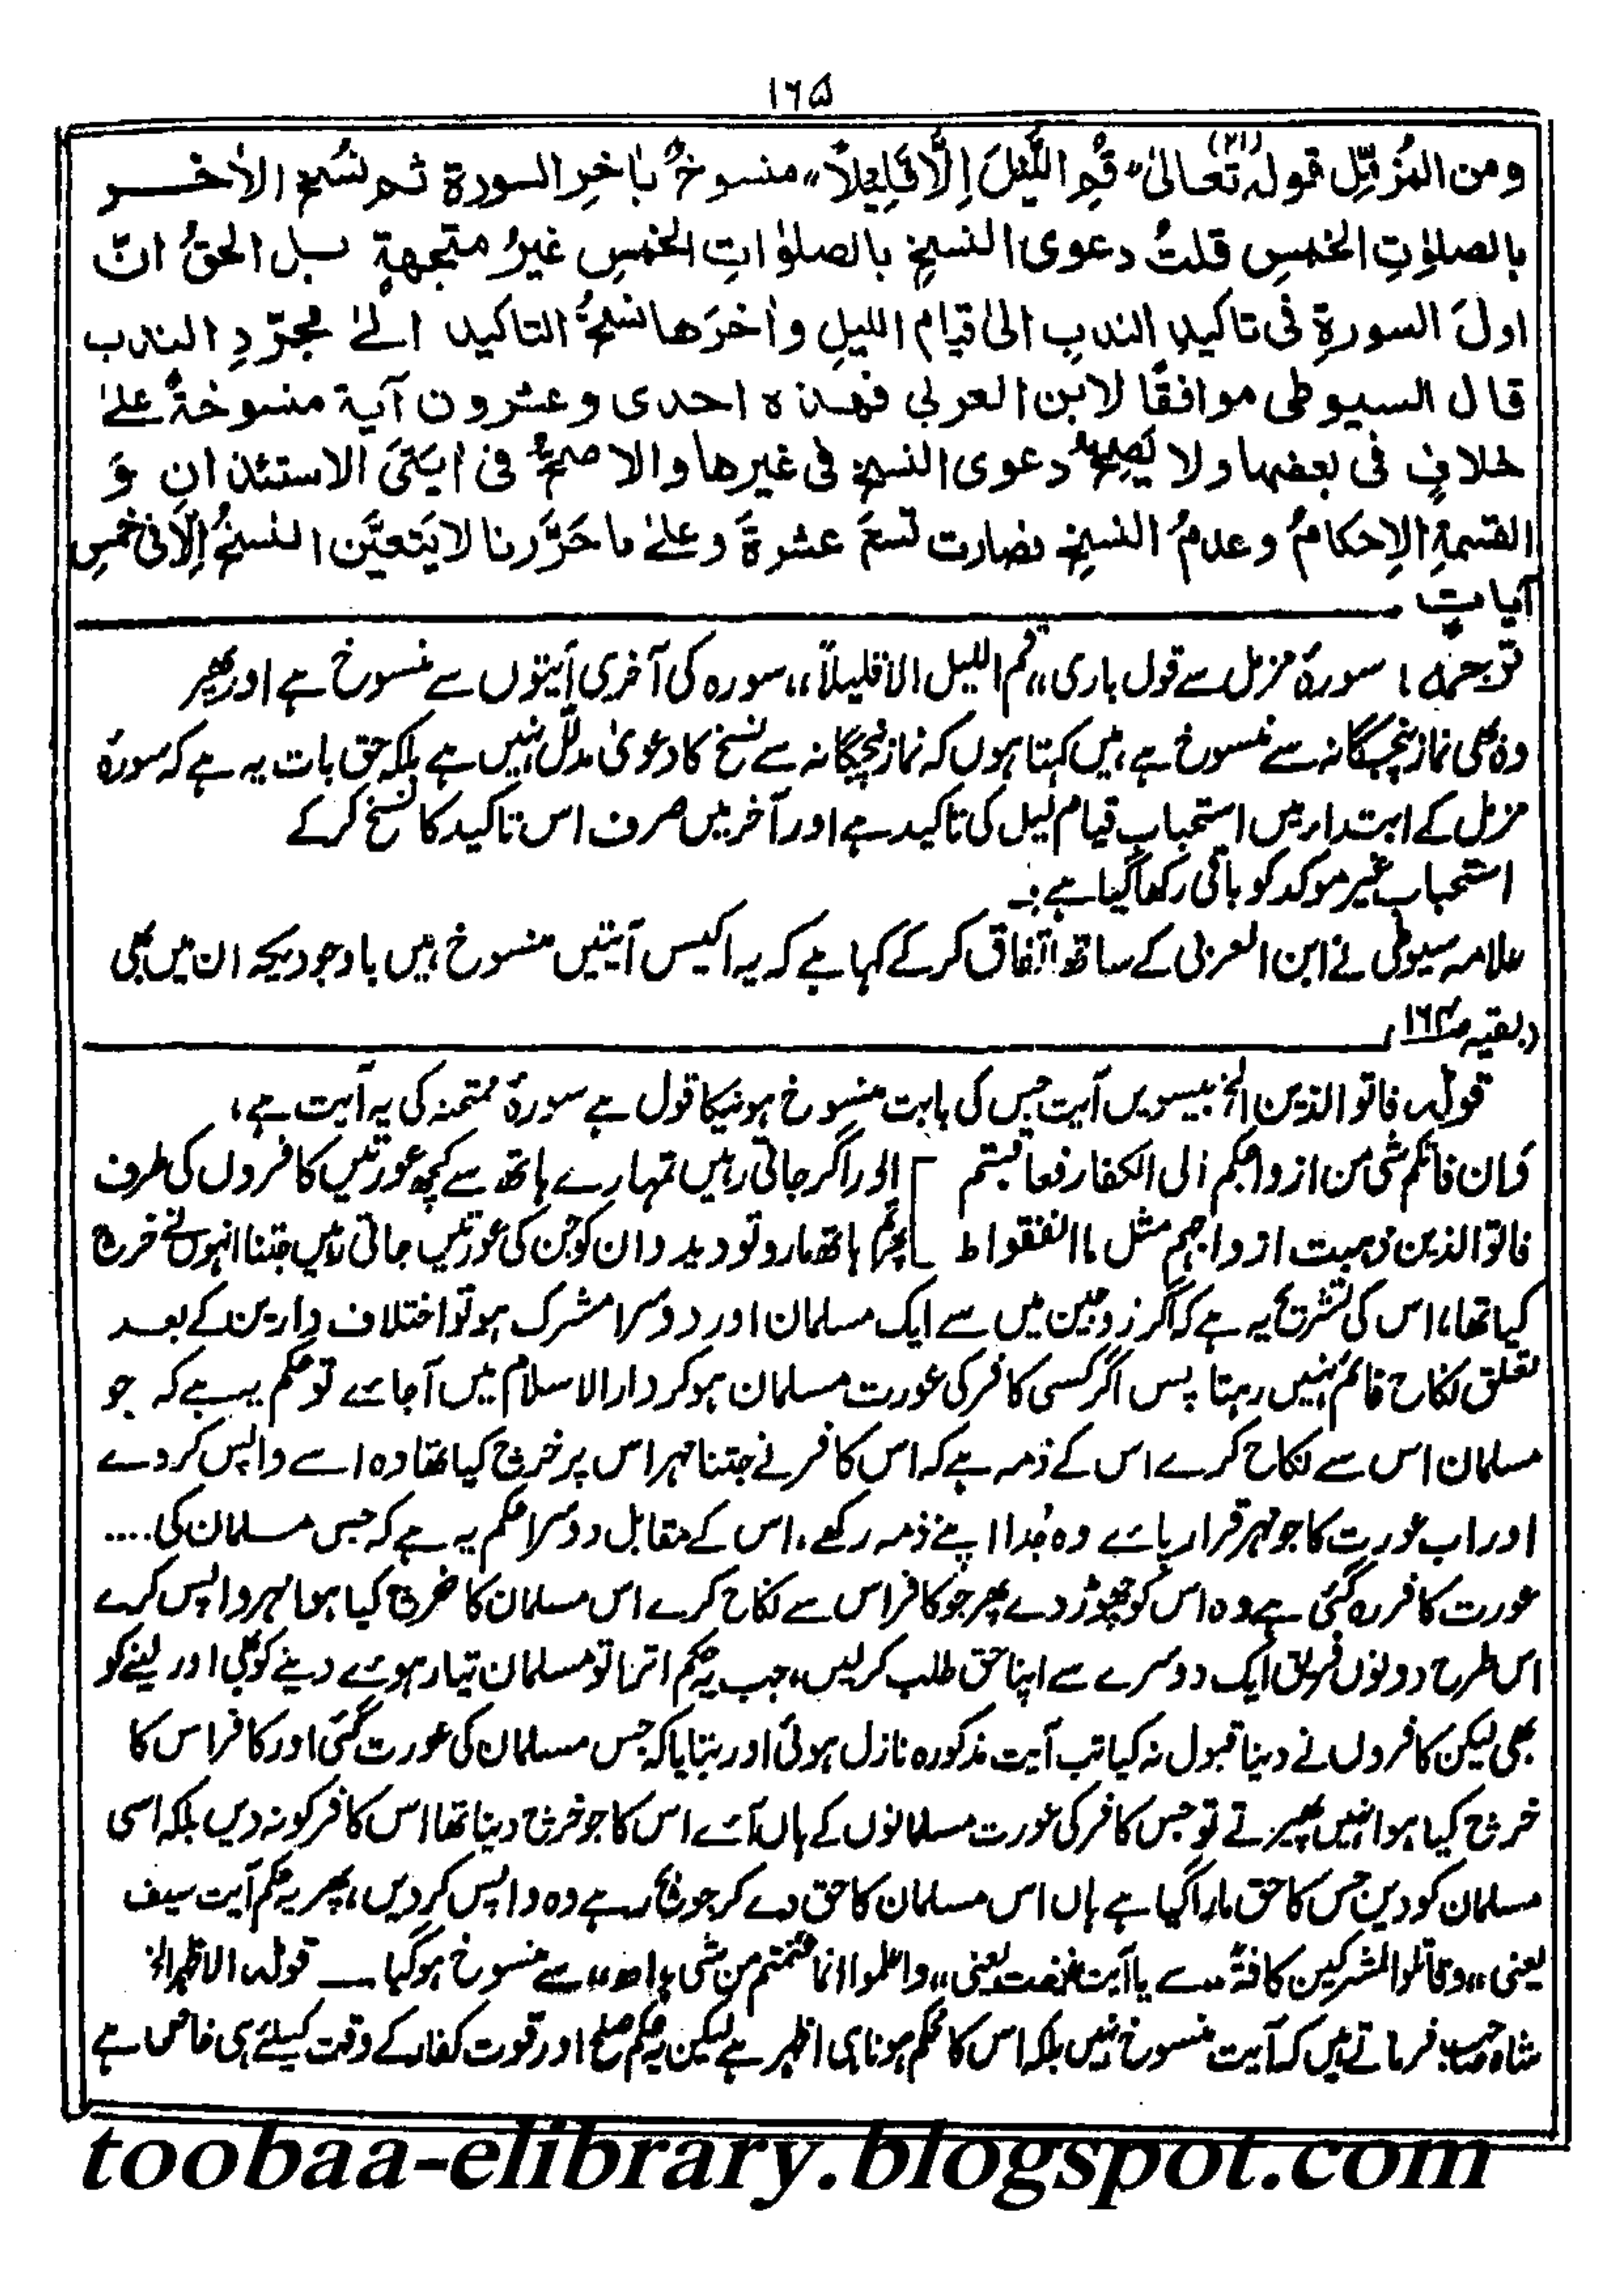 ۱۶۵
ومن المُزمِّل قولہ تعالیٰ (۲۱) "قُمِ اللَّیْلَ اِلَّا قَلِیْلاً" منسوخٌ بآخرِ السورة ثم نُسخ الآخر
بالصلوٰتِ الخمسِ قلتُ دعوی النسخِ بالصلوٰاتِ الخمسِ غیرُ متجهةٍ بل الحقُ انّ
اولَ السورةِ فی تاکیدِ الندبِ الیٰ قیام اللیلِ وآخرَها نسخُ التاکید الیٰ مجرّدِ الندب
قال السیوطی موافقًا لابن العربی فهذه احدی وعشرون آیة منسوخةٌ علیٰ
خلافٍ فی بعضها ولا یصحُ دعوی النسخِ فی غیرها والاصحُ فی ایتی الاستئذانِ وَ
القسمةِ الاِحکامُ وعدمُ النسخِ فصارت تسعَ عشرةَ وعلیٰ ما حَرَّرنا لا یَتعیَّن النسخُ اِلّا فی خمسِ
آیاتٍ
ترجمہ: سورۂ مزمل سے قول باری "قم اللیل الا قلیلاً" سورہ کی آخری آیتوں سے منسوخ ہے اور پھر
وہ بھی نماز پنجگانہ سے منسوخ ہے، میں کہتا ہوں کہ نماز پنجگانہ سے نسخ کا دعویٰ مدلّل نہیں ہے بلکہ حق بات یہ ہے کہ سورۂ
مزمل کے ابتداء میں استحباب قیام لیل کی تاکید ہے اور آخر میں صرف اس تاکید کا نسخ کرکے
استحباب غیر موکد کو باقی رکھا گیا ہے۔
علامہ سیوطی نے ابن العربی کے ساتھ اتفاق کرکے کہا ہے کہ یہ اکیس آیتیں منسوخ ہیں باوجودیکہ ان میں بھی
(بقیہ ص ۱۶۴)
قولہ فاتوا الذین الخ بیسویں آیت جس کی بابت منسوخ ہونیکا قول ہے سورۂ ممتحنہ کی یہ آیت ہے،
وَان فاتکم شئ من ازواجکم الی الکفار فعاقبتم [ اور اگر جاتی رہیں تمہارے ہاتھ سے کچھ عورتیں کافروں کی طرف
فاتوا الذین ذہبت ازواجہم مثل ما انفقوا ط ] پھر تم ہاتھ مارو تو دیدو ان کو جن کی عورتیں جاتی رہیں جتنا انہوں نے خرچ
کیا تھا، اس کی تشریح یہ ہے کہ اگر زوجین میں سے ایک مسلمان اور دوسرا مشرک ہو تو اختلاف دارین کے بعد
تعلق نکاح قائم نہیں رہتا پس اگر کسی کافر کی عورت مسلمان ہوکر دار الاسلام میں آجائے تو حکم یہ ہے کہ جو
مسلمان اس سے نکاح کرے اس کے ذمہ ہے کہ اس کافر نے جتنا مہر اس پر خرچ کیا تھا وہ اسے واپس کردے
اور اب عورت کا جو مہر قرار پائے وہ جُدا اپنے ذمہ رکھے، اس کے مقابل دوسرا حکم یہ ہے کہ جس مسلمان کی ....
عورت کافر رہ گئی ہے وہ اس کو چھوڑ دے پھر جو کافر اس سے نکاح کرے اس مسلمان کا خرچ کیا ہوا مہر واپس کرے
اس طرح دونوں فریق ایک دوسرے سے اپنا حق طلب کرلیں، جب یہ حکم اترا تو مسلمان تیار ہوئے دینے کو بھی اور لینے کو
بھی لیکن کافروں نے دینا قبول نہ کیا تب آیت مذکورہ نازل ہوئی اور بتایا کہ جس مسلمان کی عورت گئی اور کافر اس کا
خرچ کیا ہوا نہیں پھیرتے تو جس کافر کی عورت مسلمانوں کے ہاں آئے اس کا جو خرچ دینا تھا اس کافر کو نہ دیں بلکہ اسی
مسلمان کو دیں جس کا حق مارا گیا ہے ہاں اس مسلمان کا حق دے کر جو بچ رہے وہ واپس کردیں، پھر یہ حکم آیت سیف
یعنی "وقاتلوا المشرکین کافۃً" سے یا آیت غنیمت یعنی "واعلموا انما غنمتم من شئ اھ" سے منسوخ ہوگیا — قولہ الاظہر الخ
شاہ صاحب فرماتے ہیں کہ آیت منسوخ نہیں بلکہ اس کا محکم ہونا ہی اظہر ہے لیکن یہ حکم صلح اور قوت کفار کے وقت کیلئے ہی خاص ہے
toobaa-elibrary.blogspot.com